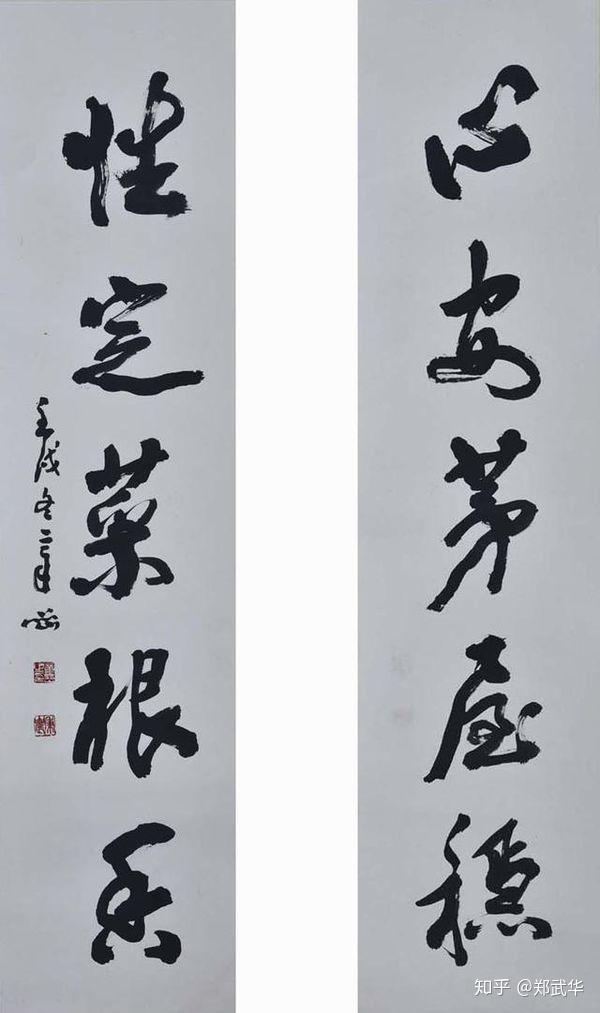 心安茅屋穩
性定菜根香
壬戌冬
知乎 @郑武华